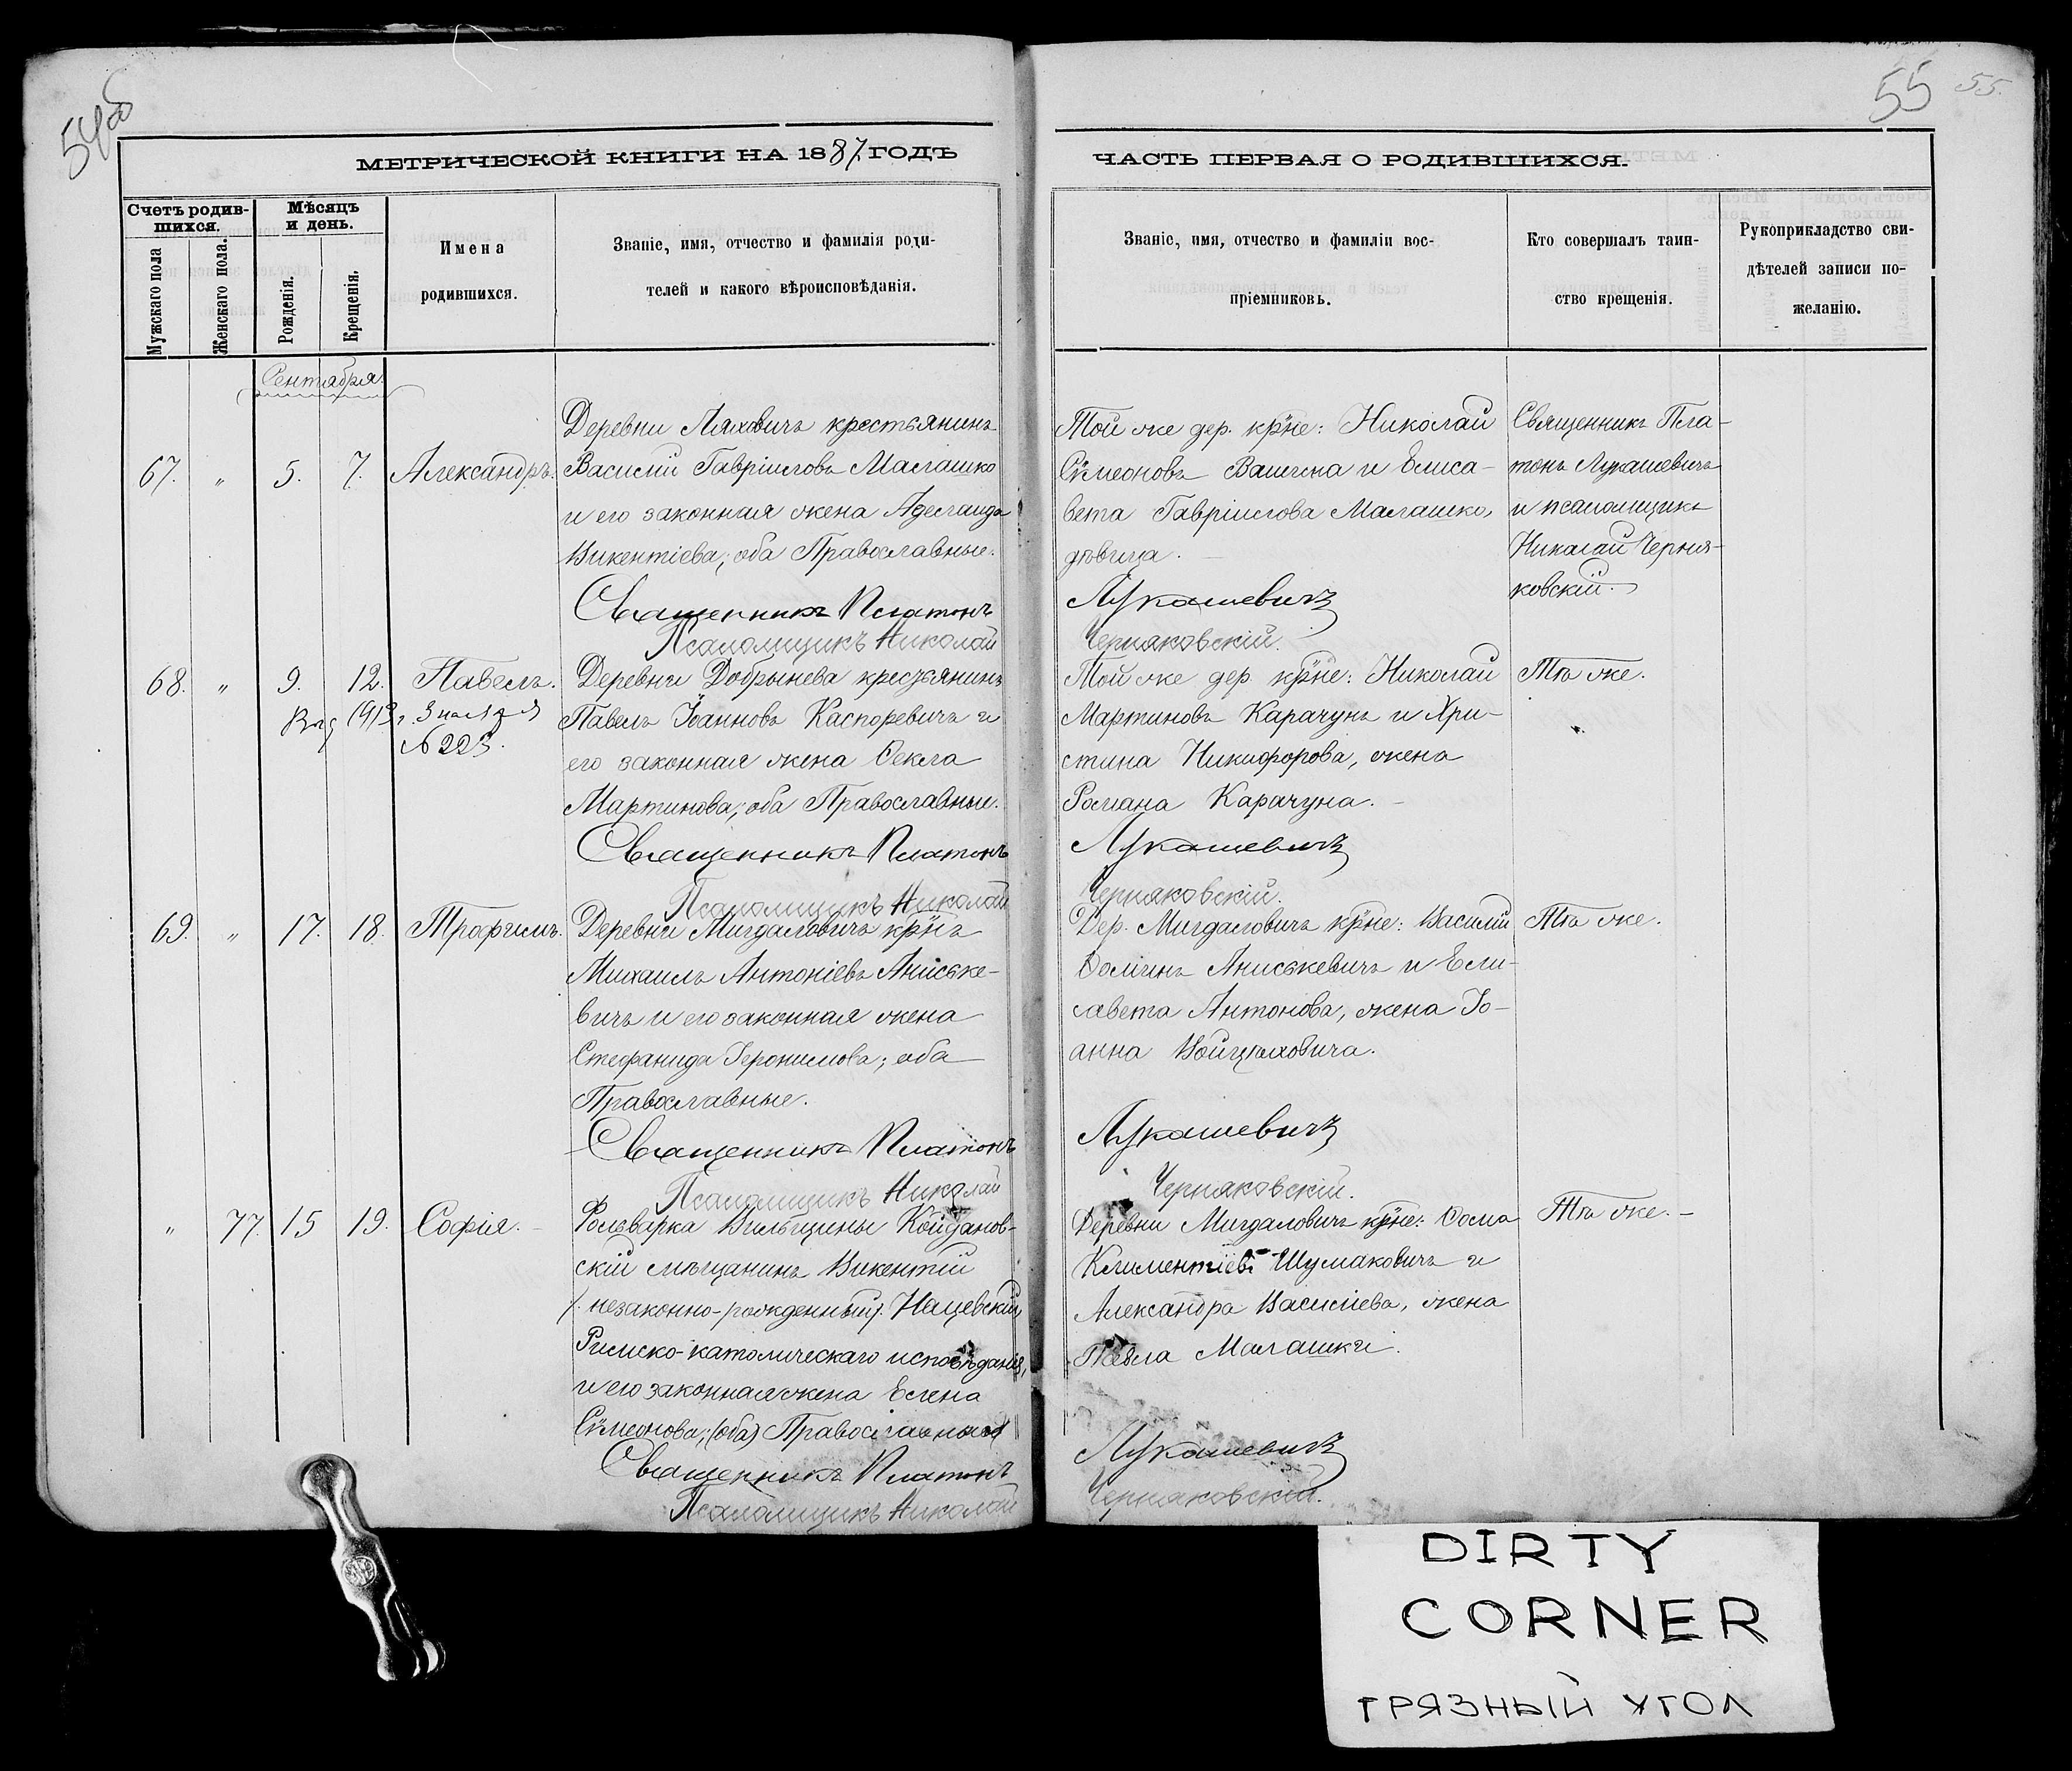 54об
55
55.
МЕТРИЧЕСКОЙ КНИГИ НА 1887 ГОДЪ
ЧАСТЬ ПЕРВАЯ О РОДИВШИХСЯ.
Счетъ родив-
шихся.
Мужскаго пола
Женскаго пола.
Мѣсяцъ
и день.
Рожденія.
Крещенія.
Имена
родившихся.
Званіе, имя, отчество и фамилія роди-
телей и какого вѣроисповѣданія.
Званіе, имя, отчество и фамиліи вос-
пріемниковъ.
Кто совершалъ таин-
ство крещенія.
Рукоприкладство сви-
дѣтелей записи по-
желанію.
Сентября.
67. " 5. 7. Александръ.
Деревни Ляховичъ крестьянинъ
Василій Гавріиловъ Малашко
и его законная жена Аделаида
Викентіева; оба Православные.
Священникъ Платонъ
Псаломщикъ Николай
Той же дер. кр̃не: Николай
Сѵмеоновъ Вашина и Елиса-
вета Гавріилова Малашко,
дѣвица.
Лукашевичъ
Черняковскій.
Священникъ Пла-
тонъ Лукашевичъ
и псаломщикъ
Николай Черня-
ковскій.
68. " 9. 12. Павелъ.
1913 г.
№ 223.
Деревни Добрынева крестьянинъ
Павелъ Іоанновъ Каспоревичъ и
его законная жена Ѳекла
Мартинова; оба Православные.
Священникъ Платонъ
Псаломщикъ Николай
Той же дер. кр̃не: Николай
Мартиновъ Карачунъ и Хри-
стина Никифорова, жена
Романа Карачуна.
Лукашевичъ
Черняковскій.
Тѣ же.
69. " 17. 18. Трофимъ.
Деревни Мигдаловичъ кр̃нъ
Михаилъ Антоніевъ Аниське-
вичъ и его законная жена
Стефанида Іеронимова; оба
Православные.
Священникъ Платонъ
Псаломщикъ Николай
Дер. Мигдаловичъ кр̃не: Василій
Ѳоминъ Аниськевичъ и Ели-
савета Антонова, жена Іо-
анна Войцюховича.
Лукашевичъ
Черняковскій.
Тѣ же.
" 77. 15 19. Софія.
Фольварка Вильбщины Койданов-
скій мѣщанинъ Викентій
(незаконно-рожденный) Нацевскій,
Римско-католическаго исповѣданія,
и его законная жена Елена
Сѵмеонова; (оба) Православные
Священникъ Платонъ
Псаломщикъ Николай
Деревни Мигдаловичъ кр̃не: Ѳома
Климентіевъ Шумаковичъ и
Александра Василіева, жена
Павла Малашки.
Лукашевичъ
Черняковскій.
Тѣ же.
DIRTY
CORNER
ГРЯЗНЫЙ УГОЛ